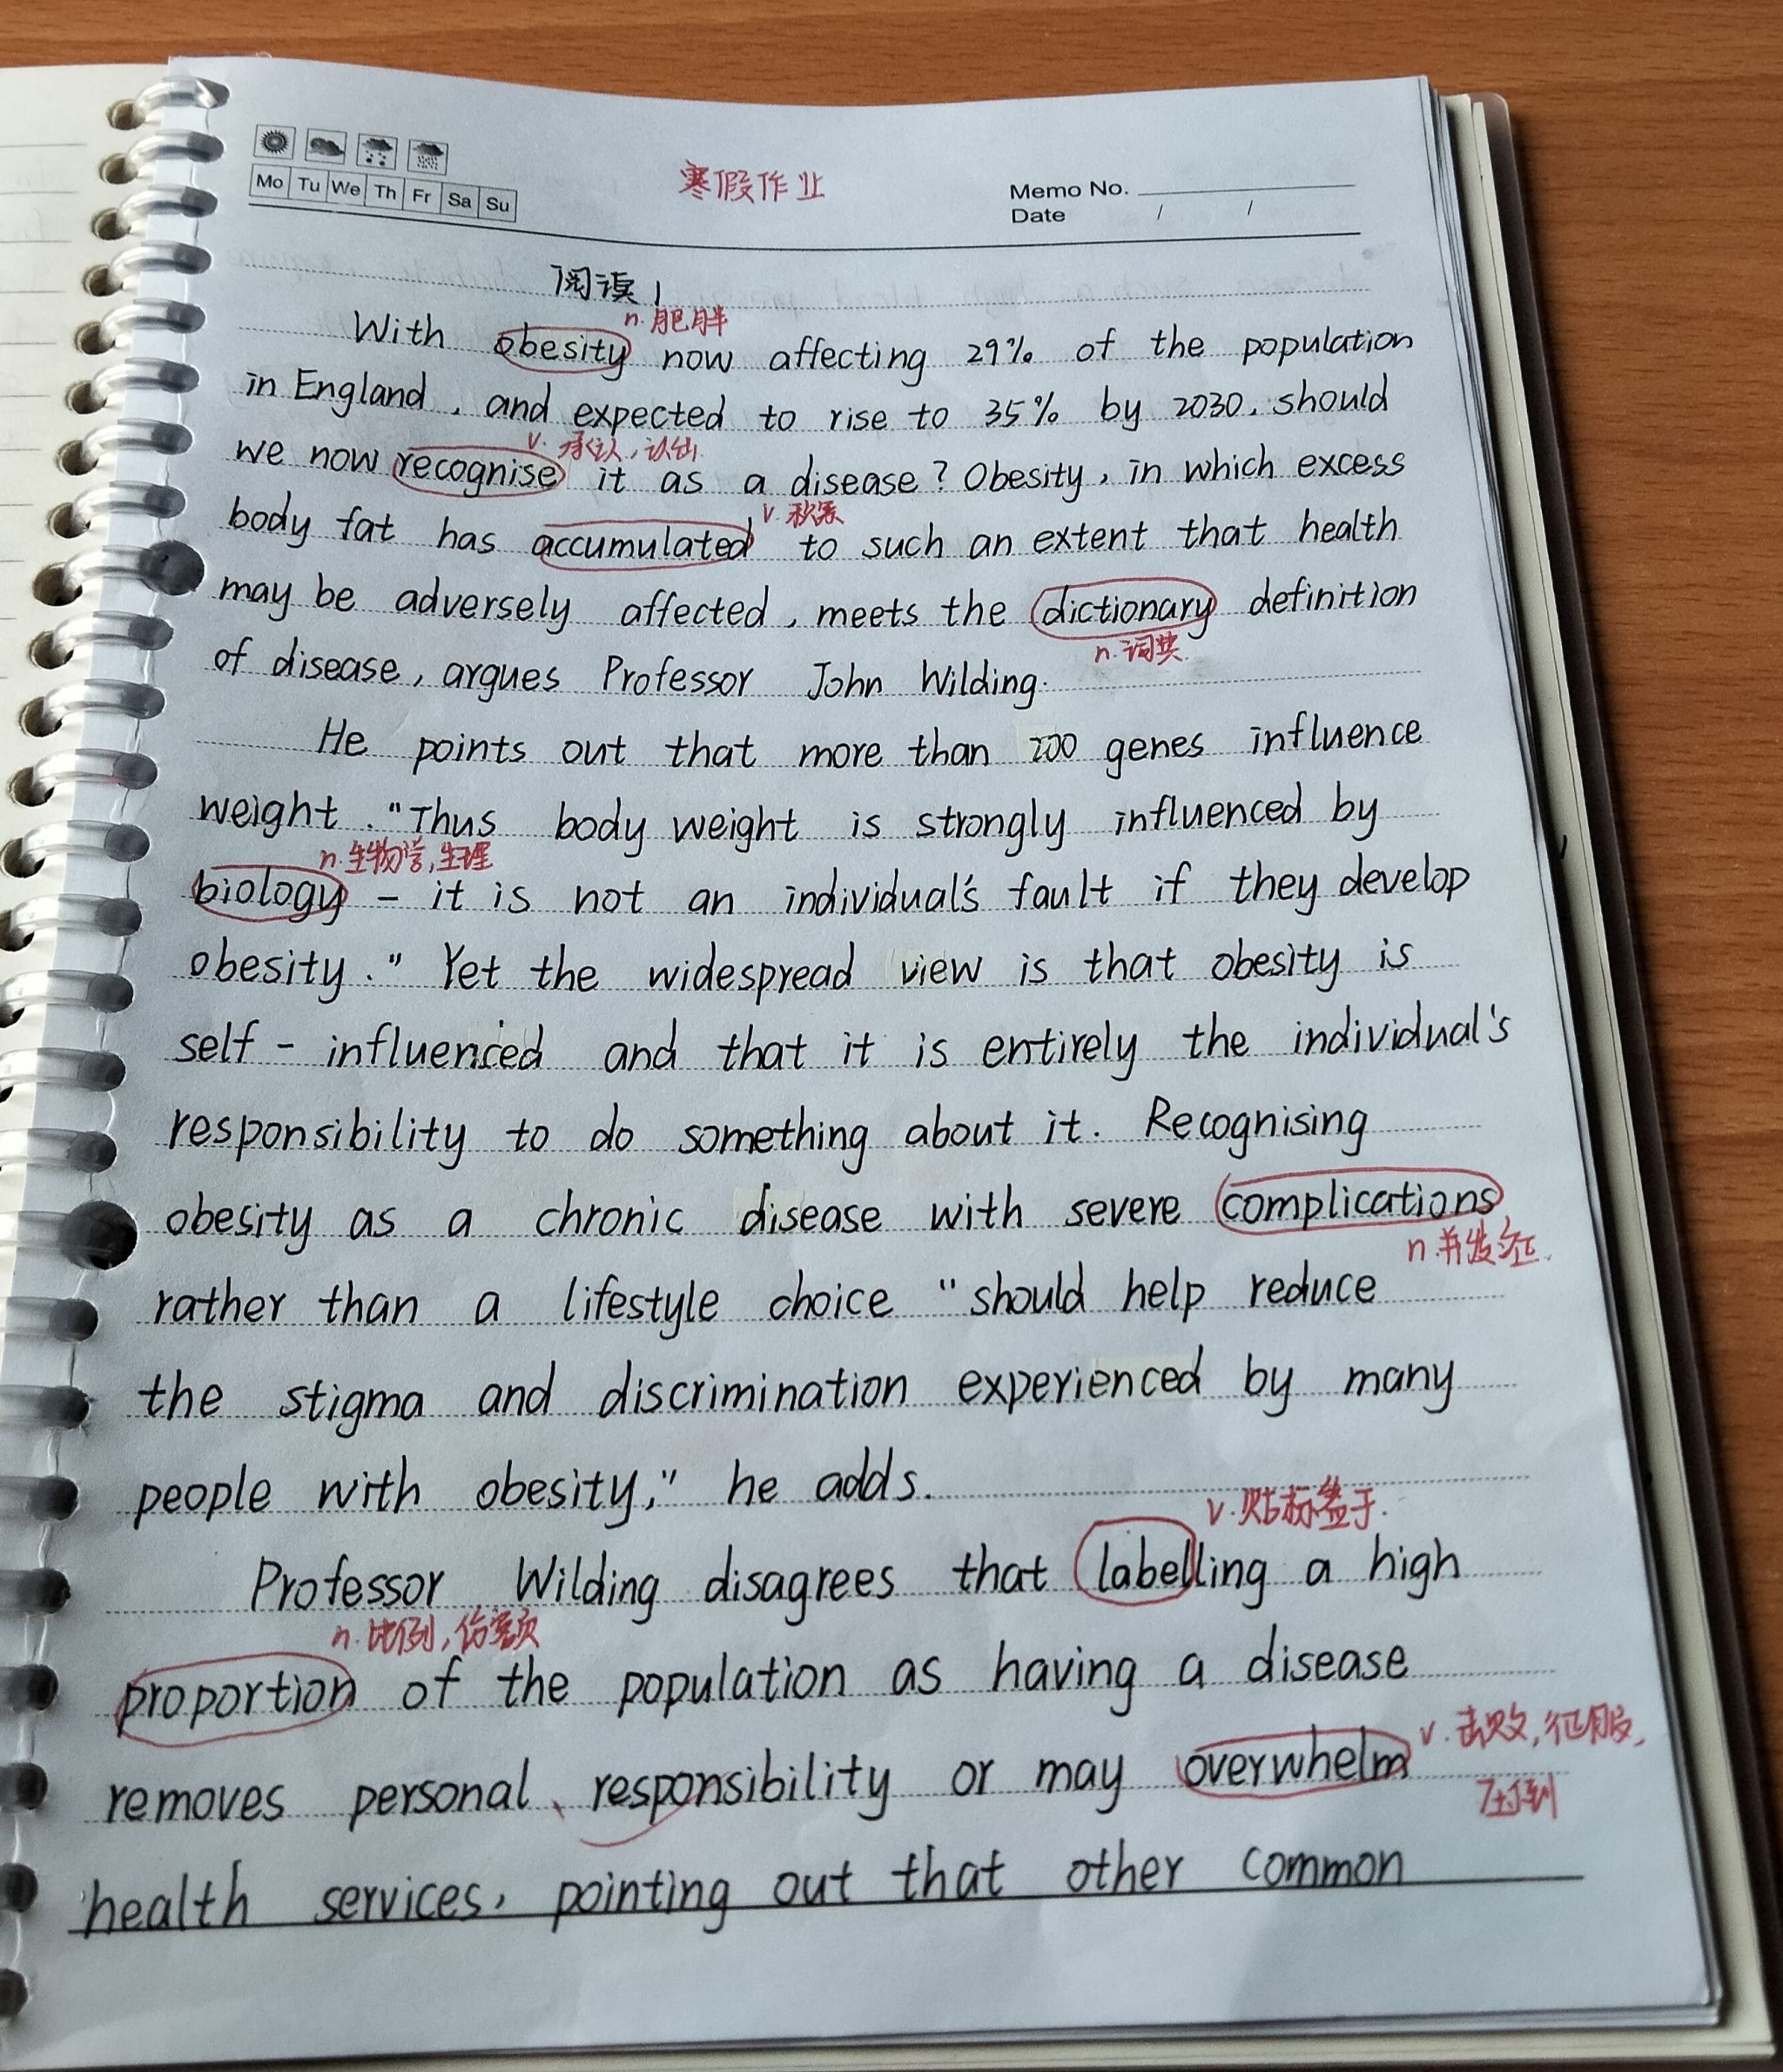 寒假作业
Mo Tu We Th Fr Sa Su
Memo No.
Date / /
阅读1
n.肥胖
With obesity now affecting 29% of the population
in England, and expected to rise to 35% by 2030, should
v. 承认,认出
we now recognise it as a disease? Obesity, in which excess
v. 积累
body fat has accumulated to such an extent that health
may be adversely affected, meets the dictionary definition
n.词典
of disease, argues Professor John Wilding.
He points out that more than 200 genes influence
weight. "Thus body weight is strongly influenced by
n.生物学,生理
biology - it is not an individual's fault if they develop
obesity." Yet the widespread view is that obesity is
self-influenced and that it is entirely the individual's
responsibility to do something about it. Recognising
obesity as a chronic disease with severe complications
n.并发症
rather than a lifestyle choice "should help reduce
the stigma and discrimination experienced by many
people with obesity," he adds.
v.贴标签于.
Professor Wilding disagrees that labelling a high
n.比例,份额
proportion of the population as having a disease
v.击败,征服,
removes personal responsibility or may overwhelm
压倒
health services, pointing out that other common